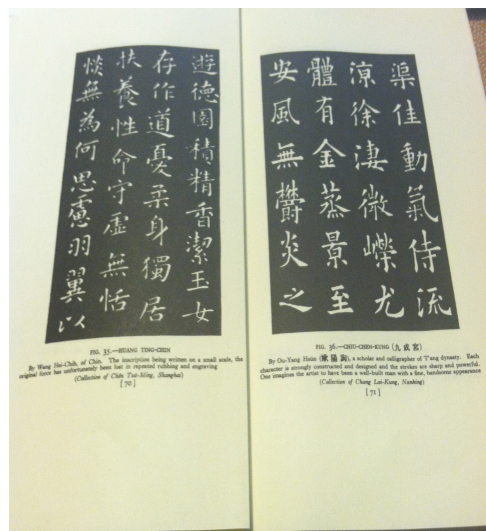 遊德園積精香潔玉女
存作道憂柔身獨居
扶養性命守虛無恬
惔無為何思慮羽翼以
FIG. 35.—HUANG TING-CHIN
By Wang Hsi-Chih, of Chin. The inscription being written on a small scale, the
original force has unfortunately been lost in repeated rubbing and engraving
(Collection of Chên Shanghai)
[ 70 ]
渠佳動氣侍流
涼徐淒微嶸尤
體有金蒸景至
安風無欝炎之
FIG. 36.—CHIU-CHEN-KUNG (九成宮)
By Ou-Yang Hsün (歐陽詢), a scholar and calligrapher of T'ang dynasty. Each
character is strongly constructed and designed and the strokes are sharp and powerful.
One imagines the artist to have been a well-built man with a fine, handsome appearance
(Collection of Chang Lai-Kung, Nanking)
[ 71 ]